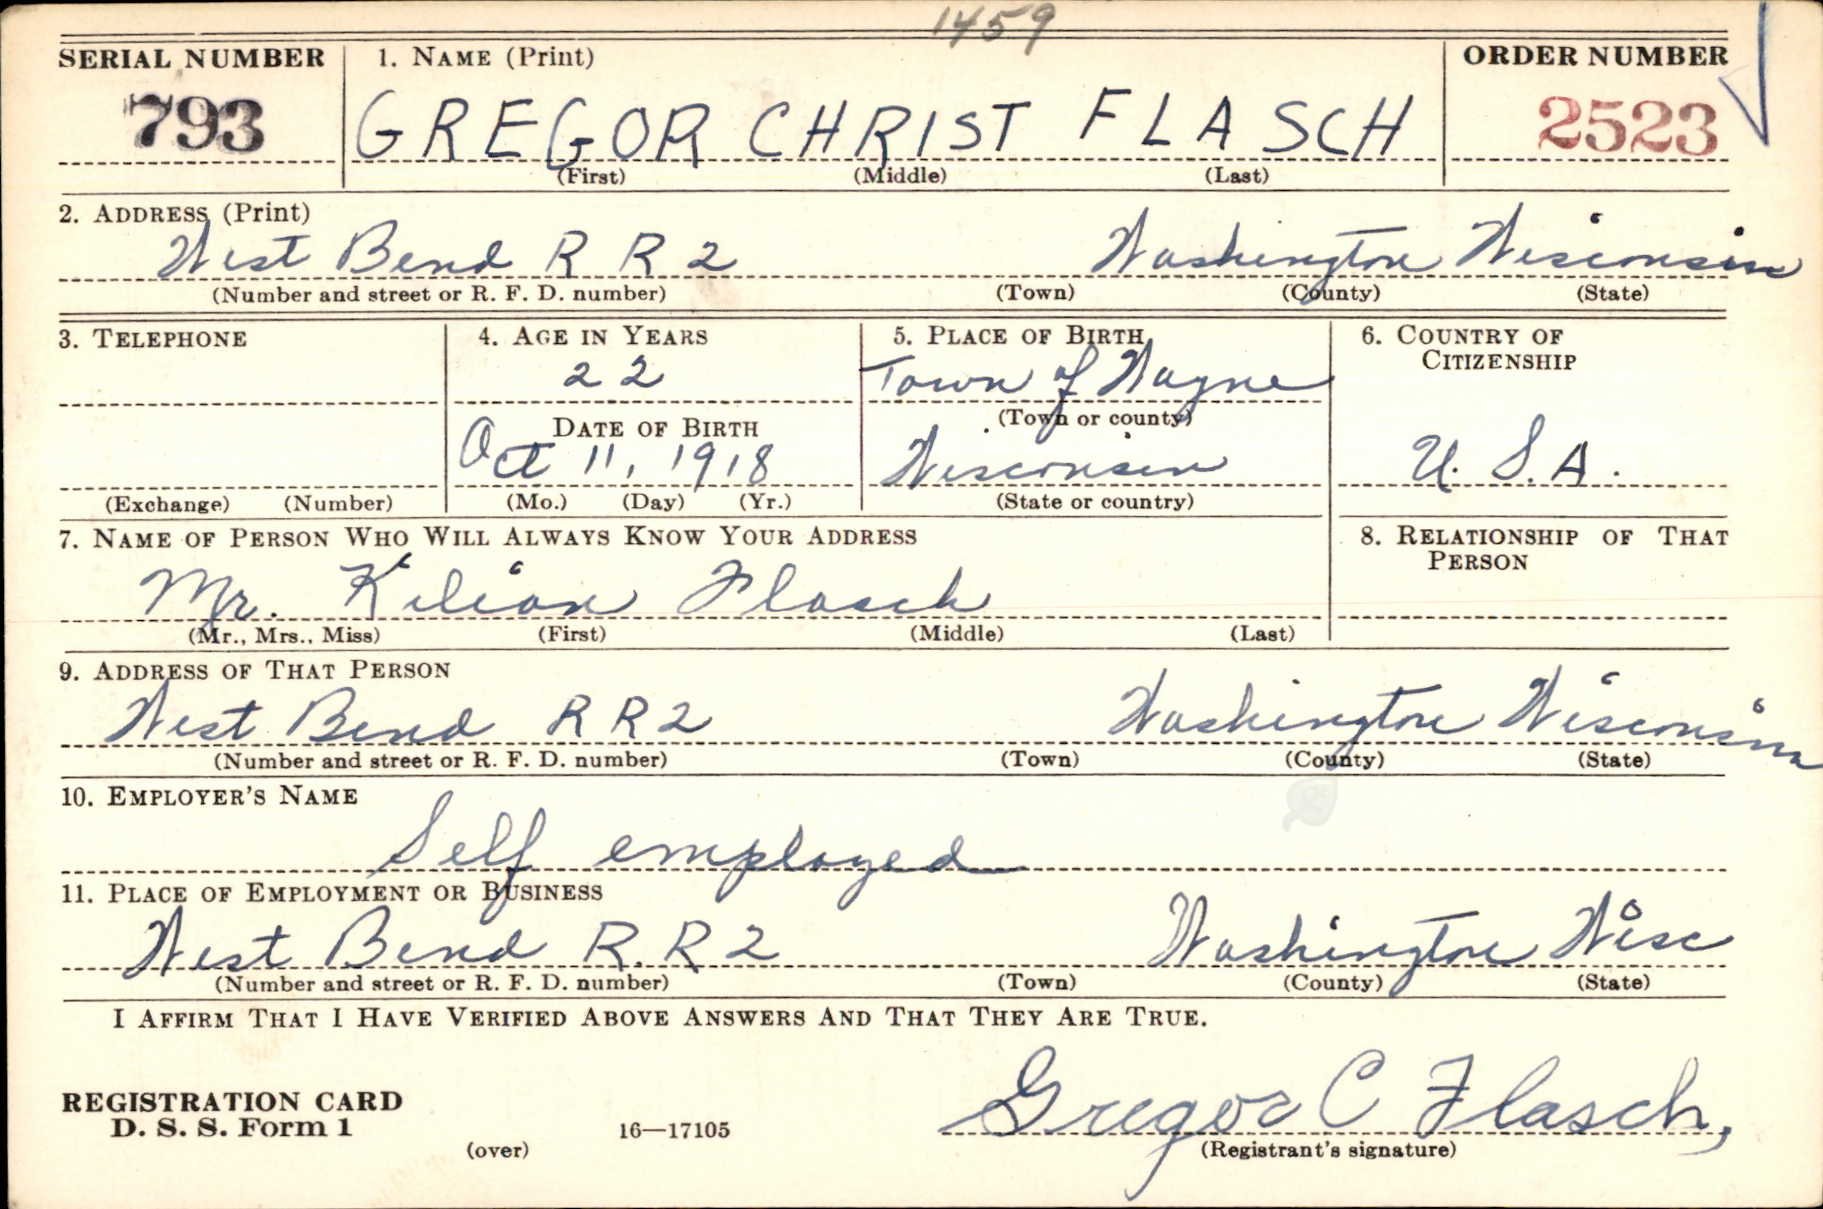 1459
SERIAL NUMBER 1. NAME (Print) ORDER NUMBER
793 GREGOR CHRIST FLASCH 2523
(First) (Middle) (Last)
2. ADDRESS (Print)
West Bend R R 2 Washington Wisconsin
(Number and street or R. F. D. number) (Town) (County) (State)
3. TELEPHONE 4. AGE IN YEARS 5. PLACE OF BIRTH 6. COUNTRY OF
CITIZENSHIP
22 Town of Wayne
(Town or county)
DATE OF BIRTH
Oct 11, 1918 Wisconsin U. S. A.
(Exchange) (Number) (Mo.) (Day) (Yr.) (State or country)
7. NAME OF PERSON WHO WILL ALWAYS KNOW YOUR ADDRESS 8. RELATIONSHIP OF THAT
PERSON
Mr. Kilian Flasch
(Mr., Mrs., Miss) (First) (Middle) (Last)
9. ADDRESS OF THAT PERSON
West Bend R R 2 Washington Wisconsin
(Number and street or R. F. D. number) (Town) (County) (State)
10. EMPLOYER'S NAME
Self employed
11. PLACE OF EMPLOYMENT OR BUSINESS
West Bend R. R 2 Washington Wisc
(Number and street or R. F. D. number) (Town) (County) (State)
I AFFIRM THAT I HAVE VERIFIED ABOVE ANSWERS AND THAT THEY ARE TRUE.
REGISTRATION CARD
D. S. S. Form 1 16—17105 Gregor C Flasch,
(over) (Registrant's signature)